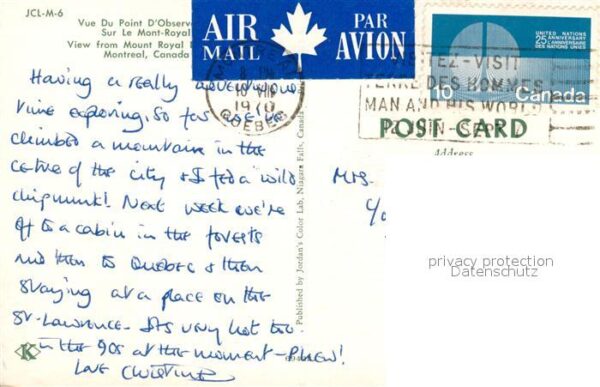 JCL-M-6
Vue Du Point D'Observ
Sur Le Mont-Royal
View from Mount Royal
Montreal, Canada
AIR MAIL
PAR AVION
UNITED NATIONS
25th ANNIVERSARY
25e ANNIVERSAIRE
DES NATIONS UNIES
10
Canada
MONTREAL
VIII
1970
QUEBEC
VISITEZ-VISIT
TERRE DES HOMMES
MAN AND HIS WORLD
12 JUIN-SEPT
POST CARD
Address
Having a really adventurous
time exploring. So far we've
climbed a mountain in the
centre of the city & fed a wild
chipmunk! Next week we're
off to a cabin in the forests
and then to Quebec & then
staying at a place on the
St-Lawrence. Its very hot too
- in the 90s at the moment - Phew!
Love Christine
Mrs.
c/o
Published by Jordan's Color Lab, Niagara Falls, Canada
K
privacy protection
Datenschutz